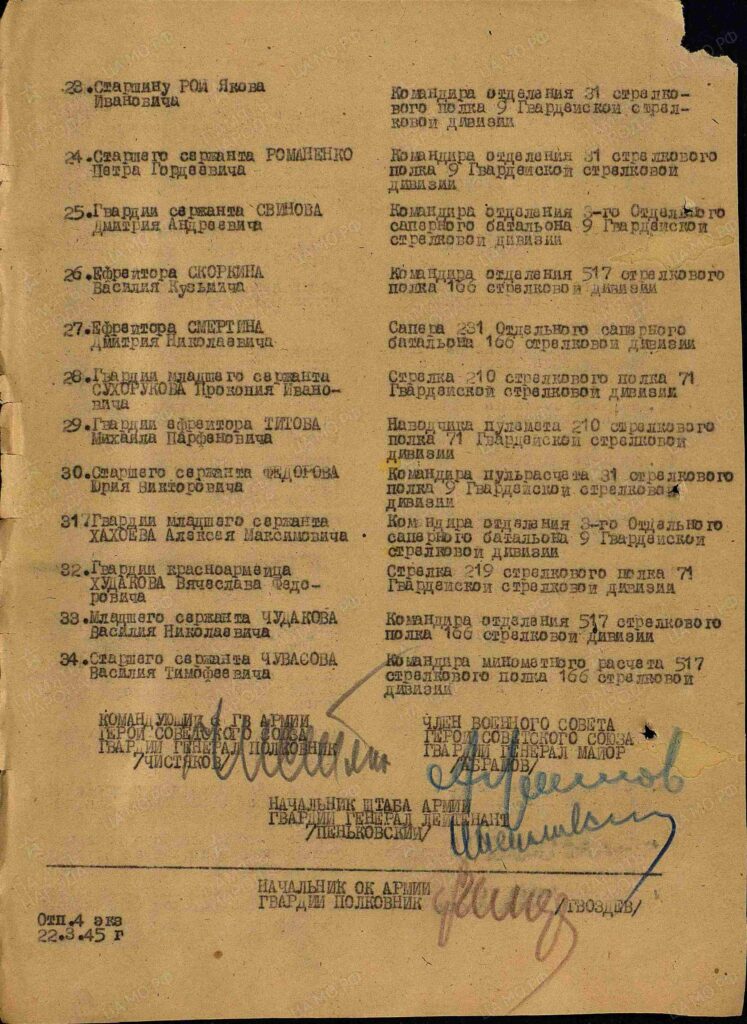 23. Старшину РОЙ Якова
Ивановича
Командира отделения 31 стрелко-
вого полка 9 Гвардейской стрел-
ковой дивизии
24. Старшего сержанта РОМАНЕНКО
Петра Гордеевича
Командира отделения 31 стрелкового
полка 9 Гвардейской стрелковой
дивизии
25. Гвардии сержанта СВИНОВА
Дмитрия Андреевича
Командира отделения 3-го Отдельного
саперного батальона 9 Гвардейской
стрелковой дивизии
26. Ефрейтора СКОРКИНА
Василия Кузьмича
Командира отделения 517 стрелкового
полка 166 стрелковой дивизии
27. Ефрейтора СМЕРТИНА
Дмитрия Николаевича
Сапера 231 Отдельного саперного
батальона 166 стрелковой дивизии
28. Гвардии младшего сержанта
СУХОРУКОВА Прокопия Ивано-
вича
Стрелка 210 стрелкового полка 71
Гвардейской стрелковой дивизии
29. Гвардии ефрейтора ТИТОВА
Михаила Парфеновича
Наводчика пулемета 210 стрелкового
полка 71 Гвардейской стрелковой
дивизии
30. Старшего сержанта ФЕДОРОВА
Юрия Викторовича
Командира пульрасчета 31 стрелкового
полка 9 Гвардейской стрелковой
дивизии
31. Гвардии младшего сержанта
ХАХОЕВА Алексея Максимовича
Командира отделения 3-го Отдельного
саперного батальона 9 Гвардейской
стрелковой дивизии
32. Гвардии красноармейца
ХУДАКОВА Вячеслава Федо-
ровича
Стрелка 219 стрелкового полка 71
Гвардейской стрелковой дивизии
33. Младшего сержанта ЧУДАКОВА
Василия Николаевича
Командира отделения 517 стрелкового
полка 166 стрелковой дивизии
34. Старшего сержанта ЧУВАСОВА
Василия Тимофеевича
Командира минометного расчета 517
стрелкового полка 166 стрелковой
дивизии
КОМАНДУЮЩИЙ 6 ГВ АРМИИ
ГЕРОЙ СОВЕТСКОГО СОЮЗА
ГВАРДИИ ГЕНЕРАЛ ПОЛКОВНИК
/ЧИСТЯКОВ/
ЧЛЕН ВОЕННОГО СОВЕТА
ГЕРОЙ СОВЕТСКОГО СОЮЗА
ГВАРДИИ ГЕНЕРАЛ МАЙОР
/АБРАМОВ/
НАЧАЛЬНИК ШТАБА АРМИИ
ГВАРДИИ ГЕНЕРАЛ ЛЕЙТЕНАНТ
/ПЕНЬКОВСКИЙ/
НАЧАЛЬНИК ОК АРМИИ
ГВАРДИИ ПОЛКОВНИК /ГВОЗДЕВ/
Отп. 4 экз
22.3.45 г